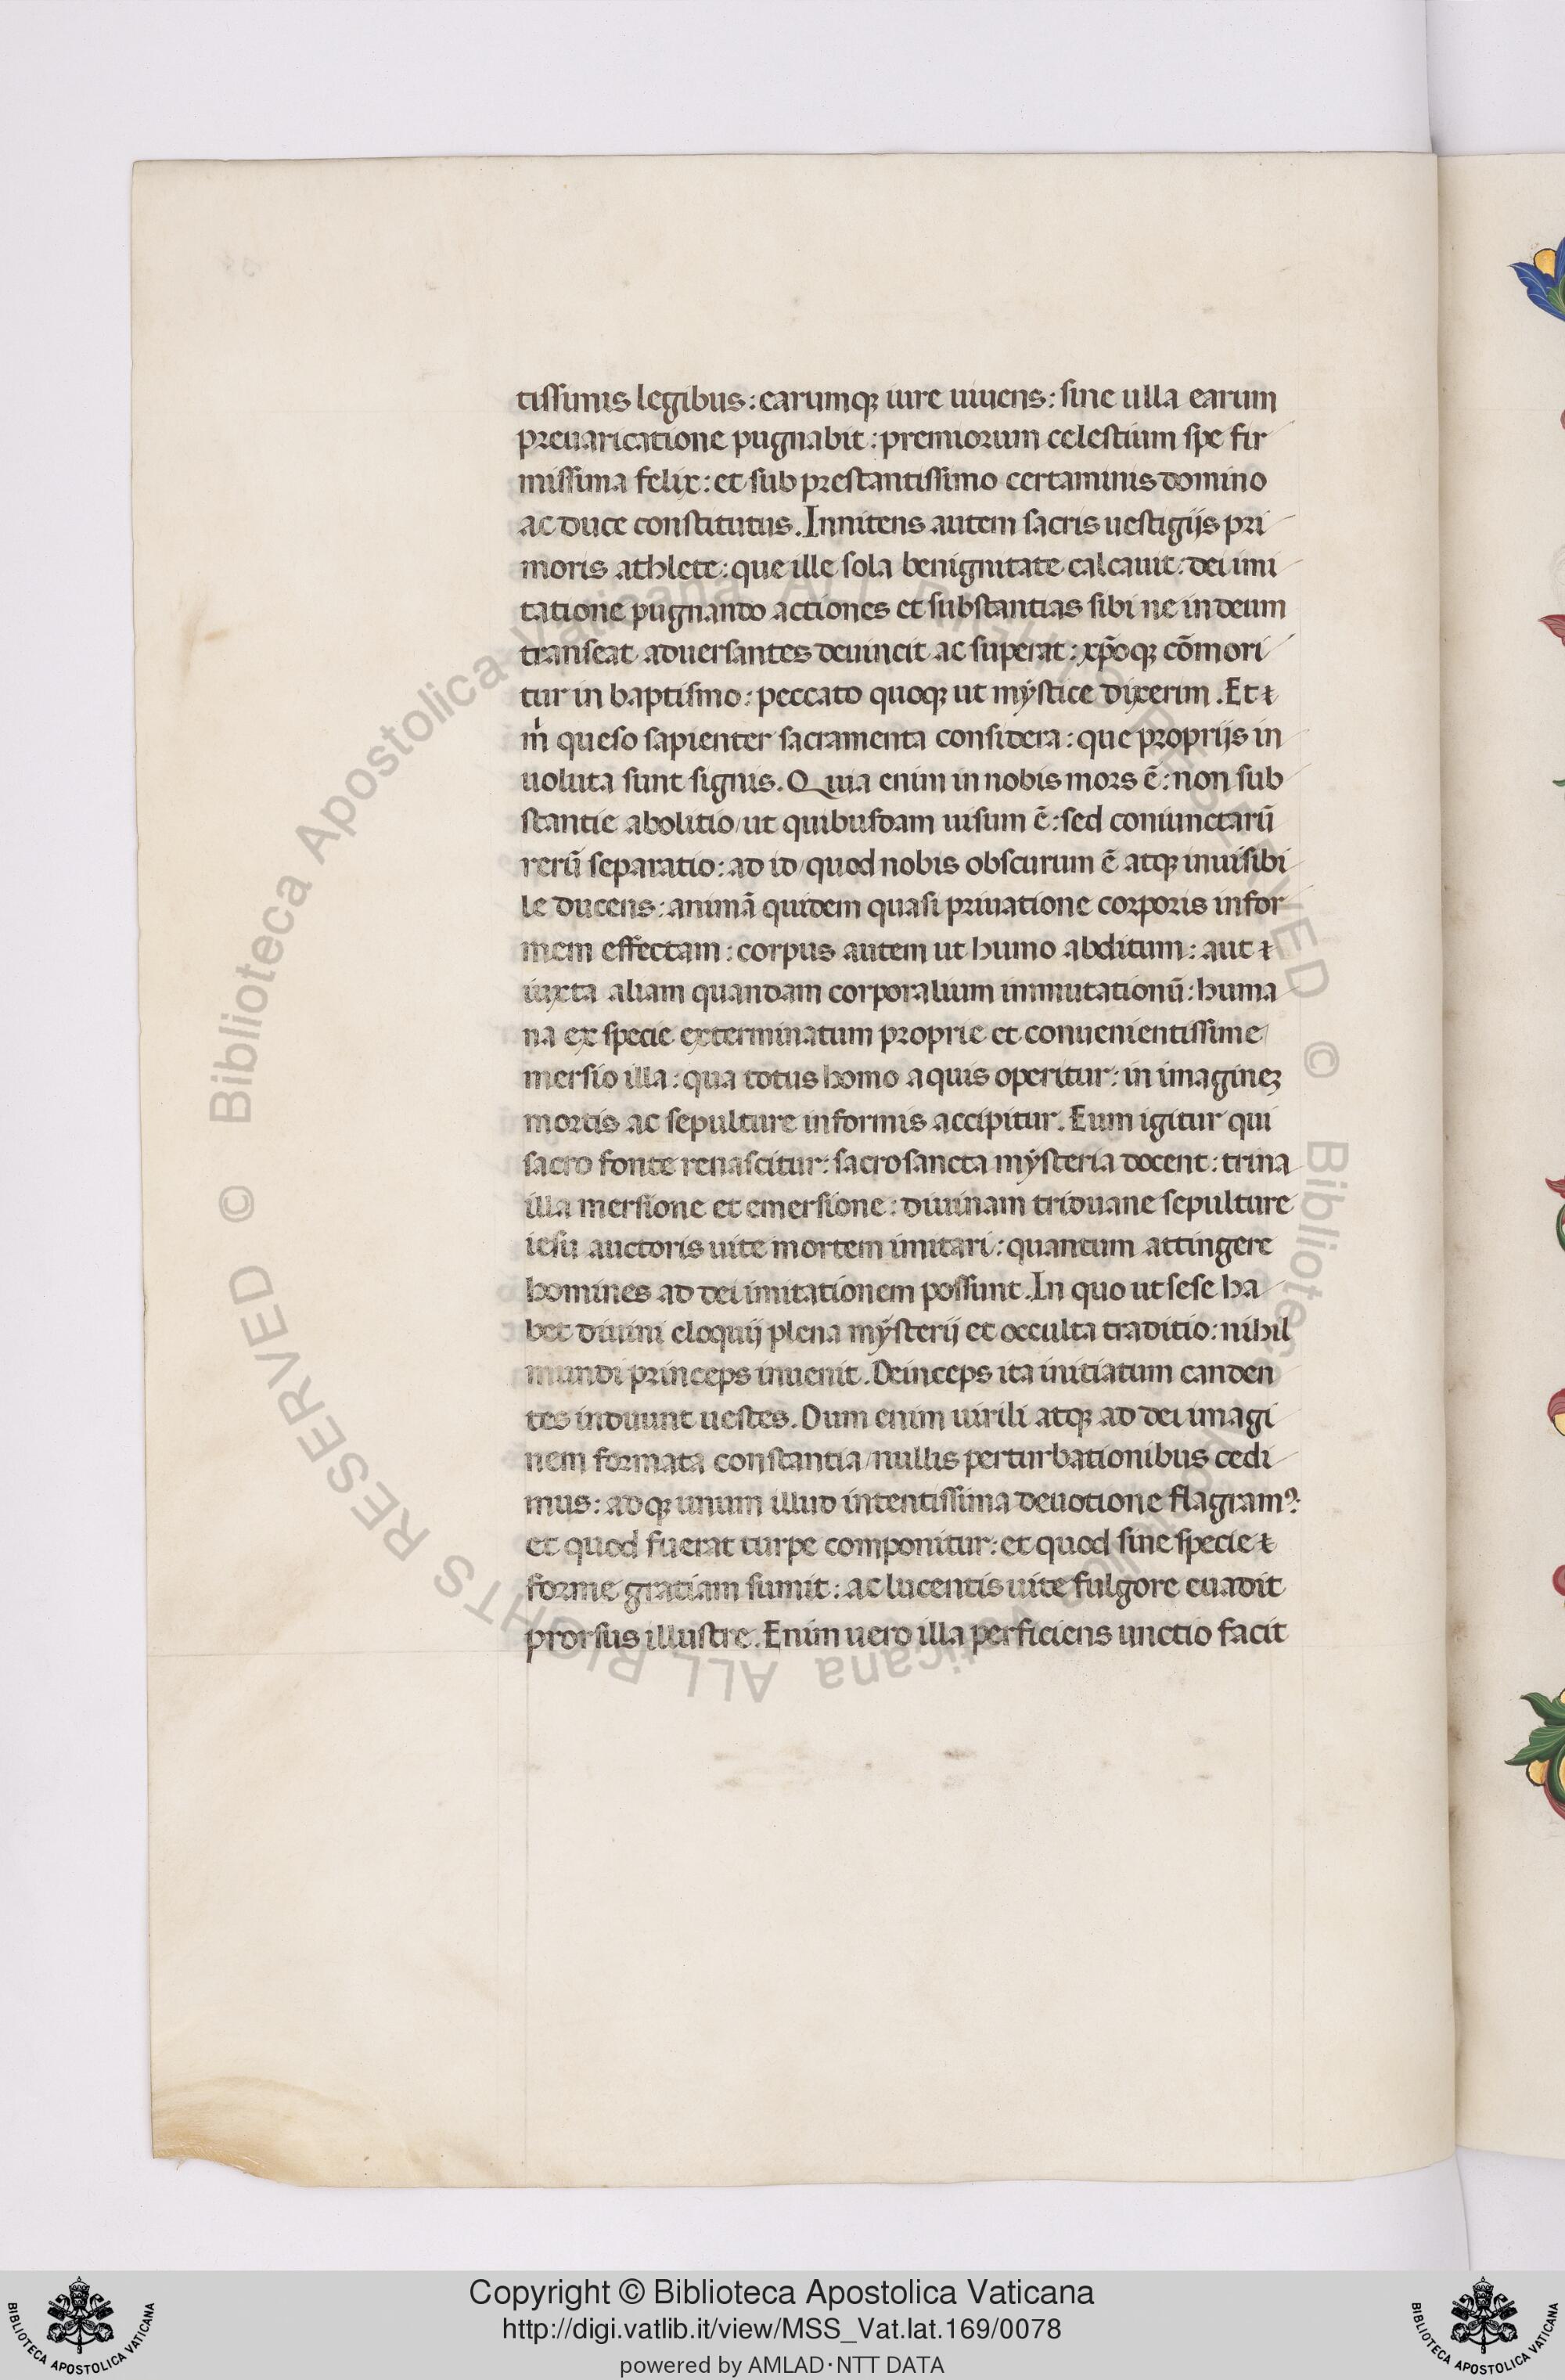 tissimis legibus: earumqꝫ iure uiuens: sine ulla earum
preuaricatione pugnabit: premiorum celestium spe fir
missima felix: et sub prestantissimo certaminis domino
ac duce constitutus. Innitens autem sacris uestigijs pri
moris athlete: que ille sola benignitate calcauit: dei imi
tatione pugnando actiones et substantias sibi ne in deum
transeat aduersantes deuincit ac superat: xp̄oqꝫ cōmori
tur in baptismo: peccato quoqꝫ ut mẏstice dixerim. Et
m̍ queso sapienter sacramenta considera: que proprijs in
uoluta sunt signis. Quia enim in nobis mors ē: non sub
stantie abolitio/ut quibusdam uisum ē: sed coniunctarū
rerū separatio: ad id/quod nobis obscurum ē atqꝫ inuisibi
le ducens: animā quidem quasi priuatione corporis infor
mem effectam: corpus autem ut humo abditum: aut
iuxta aliam quandam corporalium inmutationū: huma
na ex specie exterminatum proprie et conuenientissime
mersio illa: qua totus homo aquis operitur: in imagineꝫ
mortis ac sepulture informis accipitur. Eum igitur qui
sacro fonte renascitur: sacrosancta mẏsteria docent: trina
illa mersione et emersione: diuinam triduane sepulture
iesu auctoris uite mortem imitari: quantum attingere
homines ad dei imitationem possunt. In quo ut sese ha
bet diuini eloquij plena mẏsterij et occulta traditio: nihil
mundi princeps inuenit. Deinceps ita initiatum canden
tes induunt uestes. Dum enim uirili atqꝫ ad dei imagi
nem formata constantia/nullis perturbationibus cedi
mus: adqꝫ unum illud intentissima deuotione flagramꝰ:
et quod fuerat turpe componitur: et quod sine specie
forme gratiam sumit: ac lucentis uite fulgore euadit
prorsus illustre. Enim uero illa perficiens unctio facit
© Biblioteca Apostolica Vaticana ALL RIGHTS RESERVED © Biblioteca Apostolica Vaticana ALL RIGHTS RESERVED
Copyright © Biblioteca Apostolica Vaticana
http://digi.vatlib.it/view/MSS_Vat.lat.169/0078
powered by AMLAD·NTT DATA
BIBLIOTECA APOSTOLICA VATICANA
BIBLIOTECA APOSTOLICA VATICANA